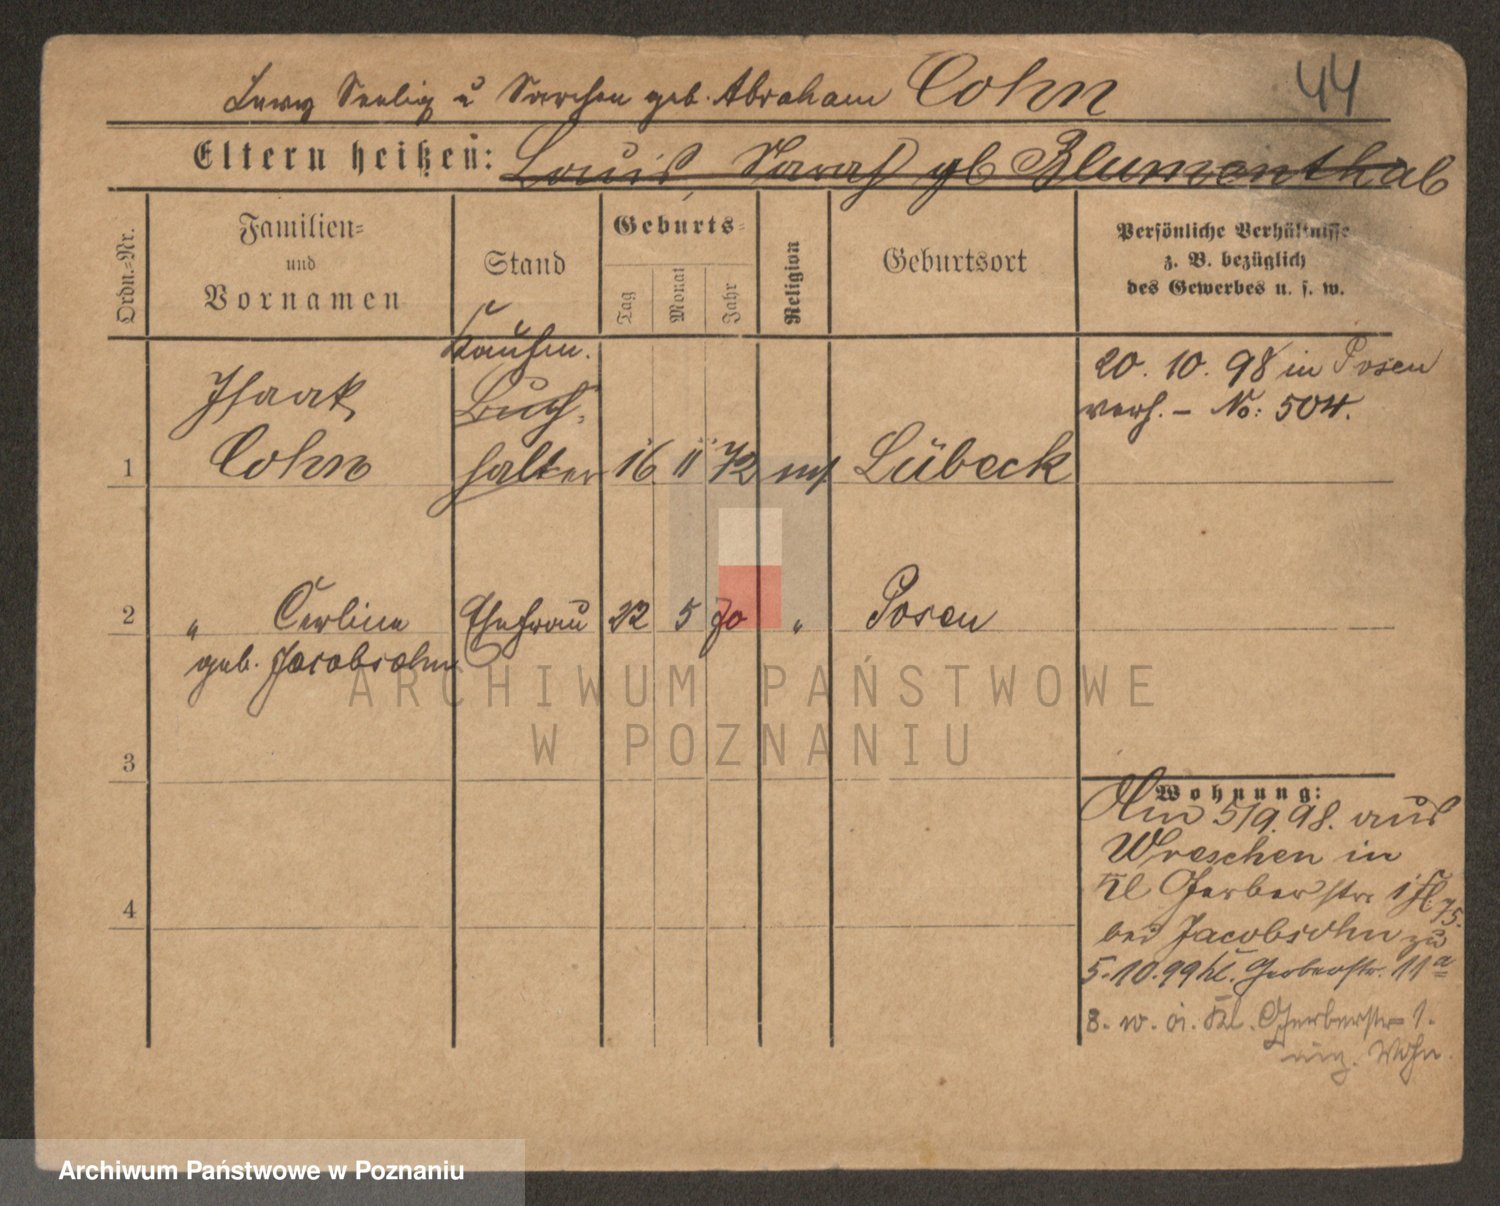 Seelig u Sarchen geb. Abraham Cohn 44
Eltern heißen: Louis Sarah gb Blumenthal
Ordn.-Nr.
Familien-
und
Vornamen
Stand
Geburts-
Tag
Monat
Jahr
Religion
Geburtsort
Persönliche Verhältnisse
z. B. bezüglich
des Gewerbes u. s. w.
Kaufm.
20. 10. 98 in Posen
verh. - No: 504.
Isaak
Buch-
1 Cohn halter 16 11 72 mos. Lübeck
2 " Cerline Ehefrau 22 5 70 " Posen
geb. Jacobsohn
3
4
Wohnung:
Am 5/9. 98. aus
Wreschen in
Kl Gerberstr 1
bei Jacobsohn zu
5.10.99 Kl. Gerberstr. 11a
8. w. o. Kl. Gerberstr 1.
Wohn.
ARCHIWUM PAŃSTWOWE
W POZNANIU
Archiwum Państwowe w Poznaniu